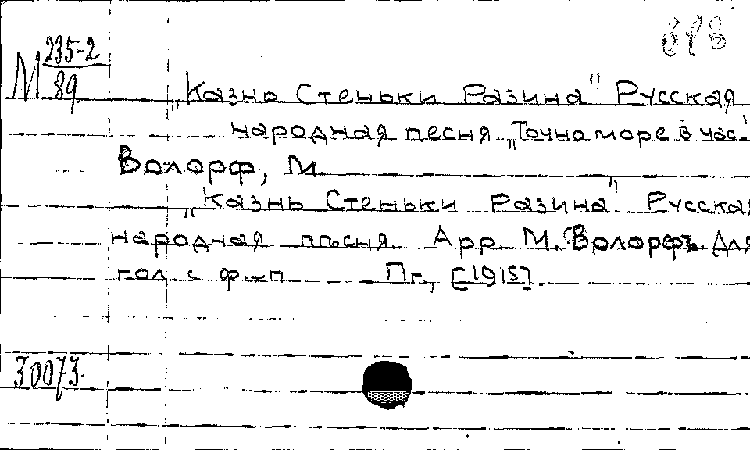 М 235-2
89
„Казнь Стеньки Разина" Русская
народная песня „Точно море в час"
Волорф, М.
„Казнь Стеньки Разина" Русская
народная песня. Арр. М. Волорфъ. Для
гол. с ф-п Пг., [1915].
30073.